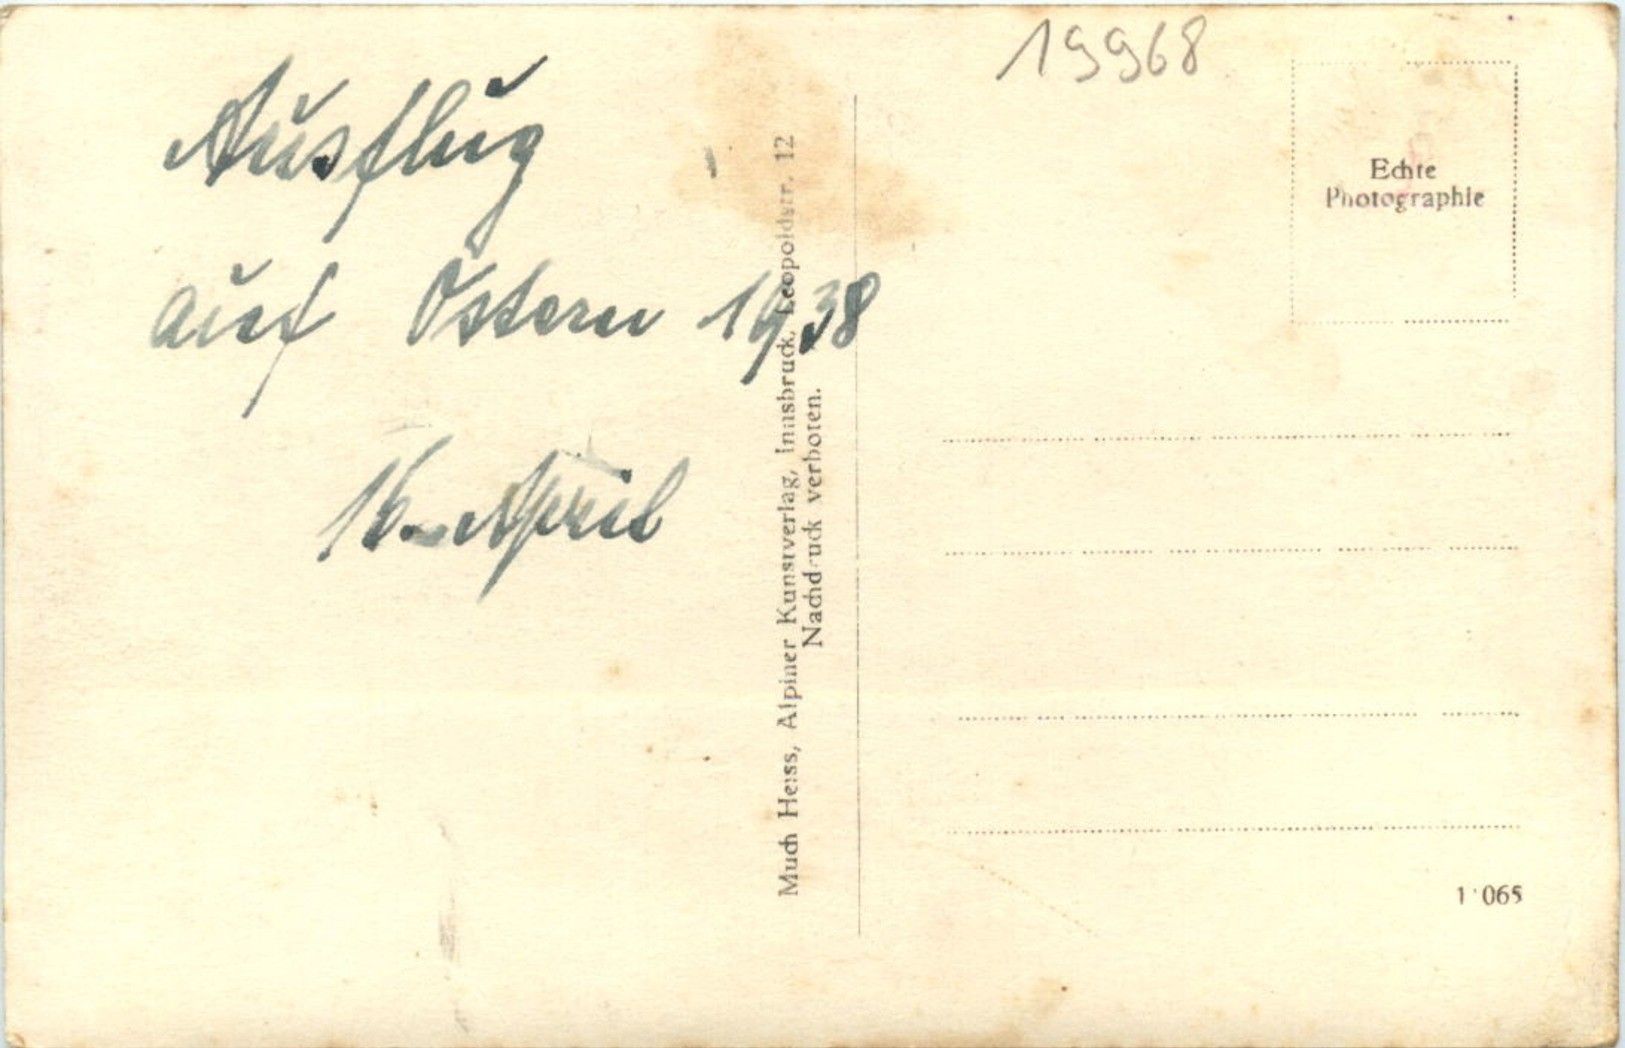 19968
Ausflug
auf Ostern 1938
16. April
Much Heiss, Alpiner Kunstverlag, Innsbruck, Leopoldstr. 12
Nachdruck verboten.
Echte
Photographie